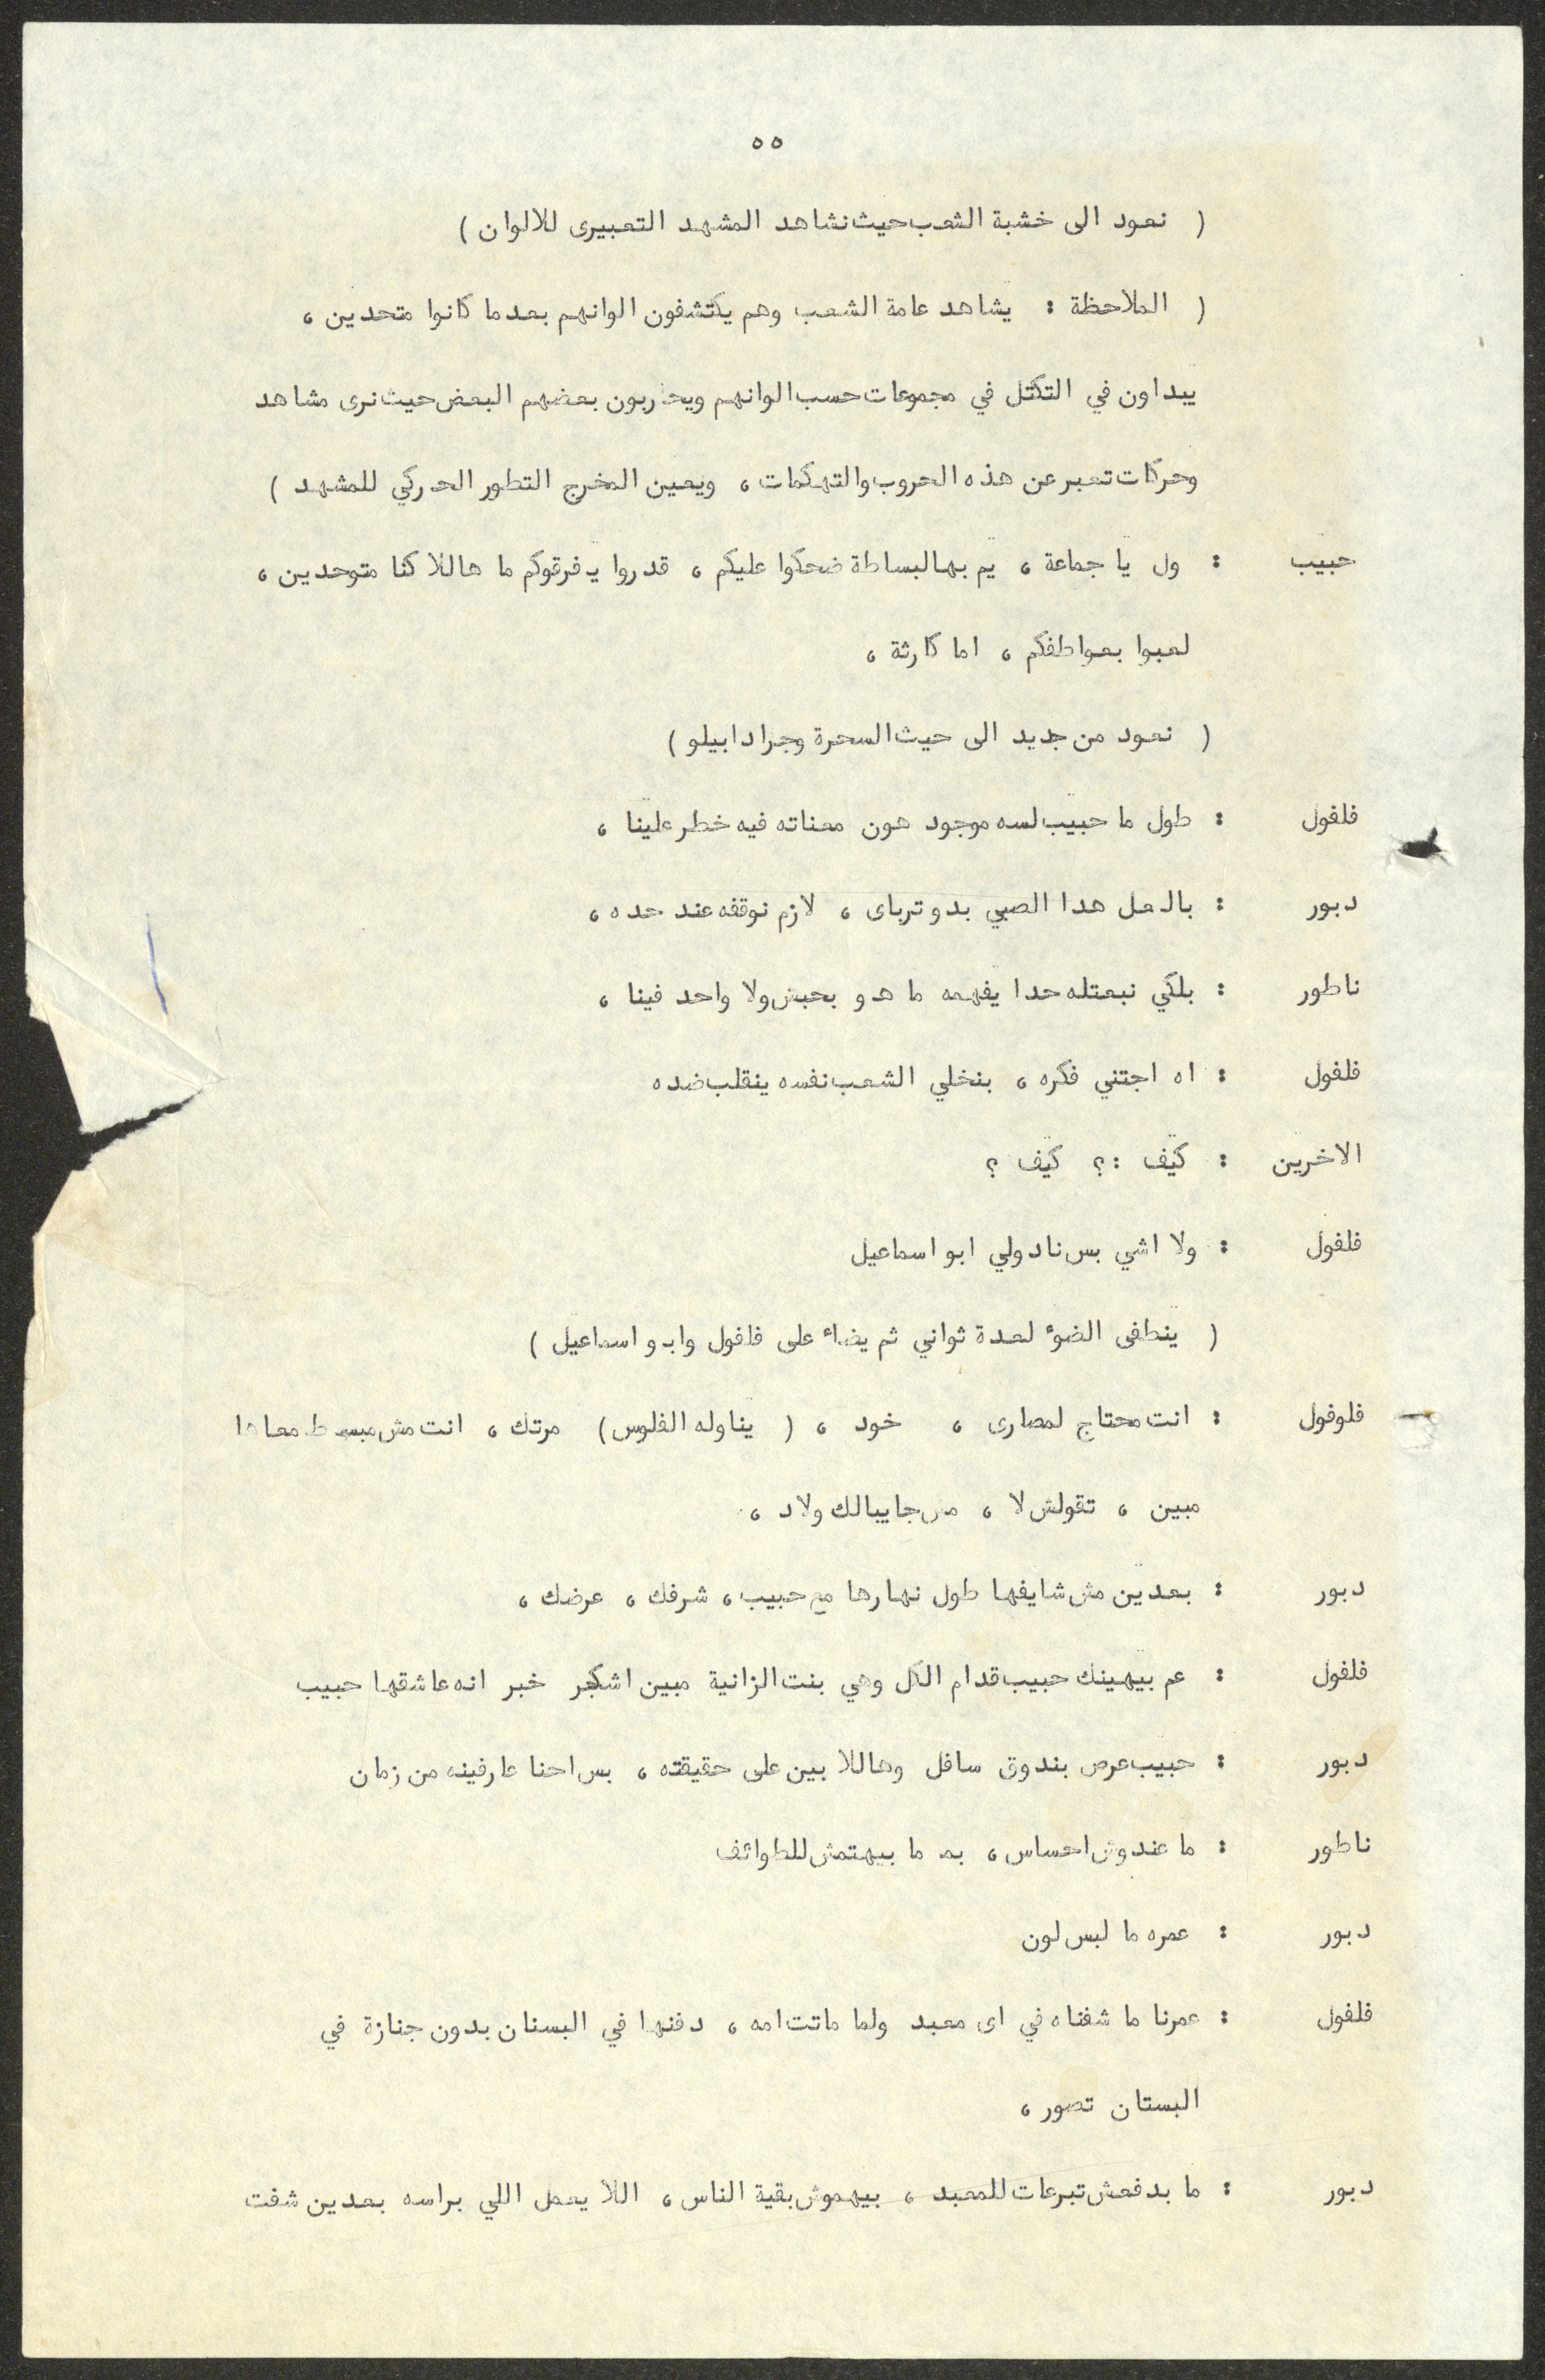 ٥٥
( نعود الى خشبة الشعب حيث نشاهد المشهد التعبيرى للالوان )
( الملاحظة : يشاهد عامة الشعب وهم يكتشفون الوانهم بعدما كانوا متحدين ،
يبداون في التكتل في مجموعات حسب الوانهم ويحاربون بعضهم البعض حيث نرى مشاهد
وحركات تعبر عن هذه الحروب والتهكمات ، ويعين المخرج التطور الحركي للمشهد )
حبيب : ول يا جماعة ، يم بهالبساطة ضحكوا عليكم ، قدروا يفرقوكم ما هاللا كنا متوحدين ،
لعبوا بعواطفكم ، اما كارثة ،
( نعود من جديد الى حيث السحرة وجرادابيلو )
فلفول : طول ما حبيب لسه موجود هون معناته فيه خطر علينا ،
دبور : بالعل هدا الصبي بدو ترباى ، لازم نوقفه عند حده ،
ناطور : بلكي نبعتله حدا يفهمه ما هو بحبش ولا واحد فينا ،
فلفول : اه اجتني فكره ، بنخلي الشعب نفسه ينقلب ضده
الاخرين : كيف :؟ كيف ؟
فلفول : ولا اشي بس نادولي ابو اسماعيل
( ينطفى الضوء لعدة ثواني ثم يضاء على فلفول وابو اسماعيل )
فلوفول : انت محتاج لمصارى ، خود ، ( يناوله الفلوس ) مرتك ، انت مش مبسوط معاها
مبين ، تقولش لا ، مش جايبالك ولاد ،
دبور : بعدين مش شايفها طول نهارها مع حبيب ، شرفك ، عرضك ،
فلفول : عم بيهينك حبيب قدام الكل وهي بنت الزانية مبين اشكبر خبر انه عاشقها حبيب
دبور : حبيب عرص بندوق سافل وهاللا بين على حقيقته ، بس احنا عارفينه من زمان
ناطور : ما عندوش احساس ، بعد ما بيهتمش للطوائف
دبور : عمره ما لبس لون
فلفول : عمرنا ما شفناه في اى معبد ولما ماتت امه ، دفنها في البسنان بدون جنازة في
البستان تصور ،
دبور : ما بدفعش تبرعات للمعبد ، بيهموش بقية الناس ، اللا يعمل اللي براسه بعدين شفت